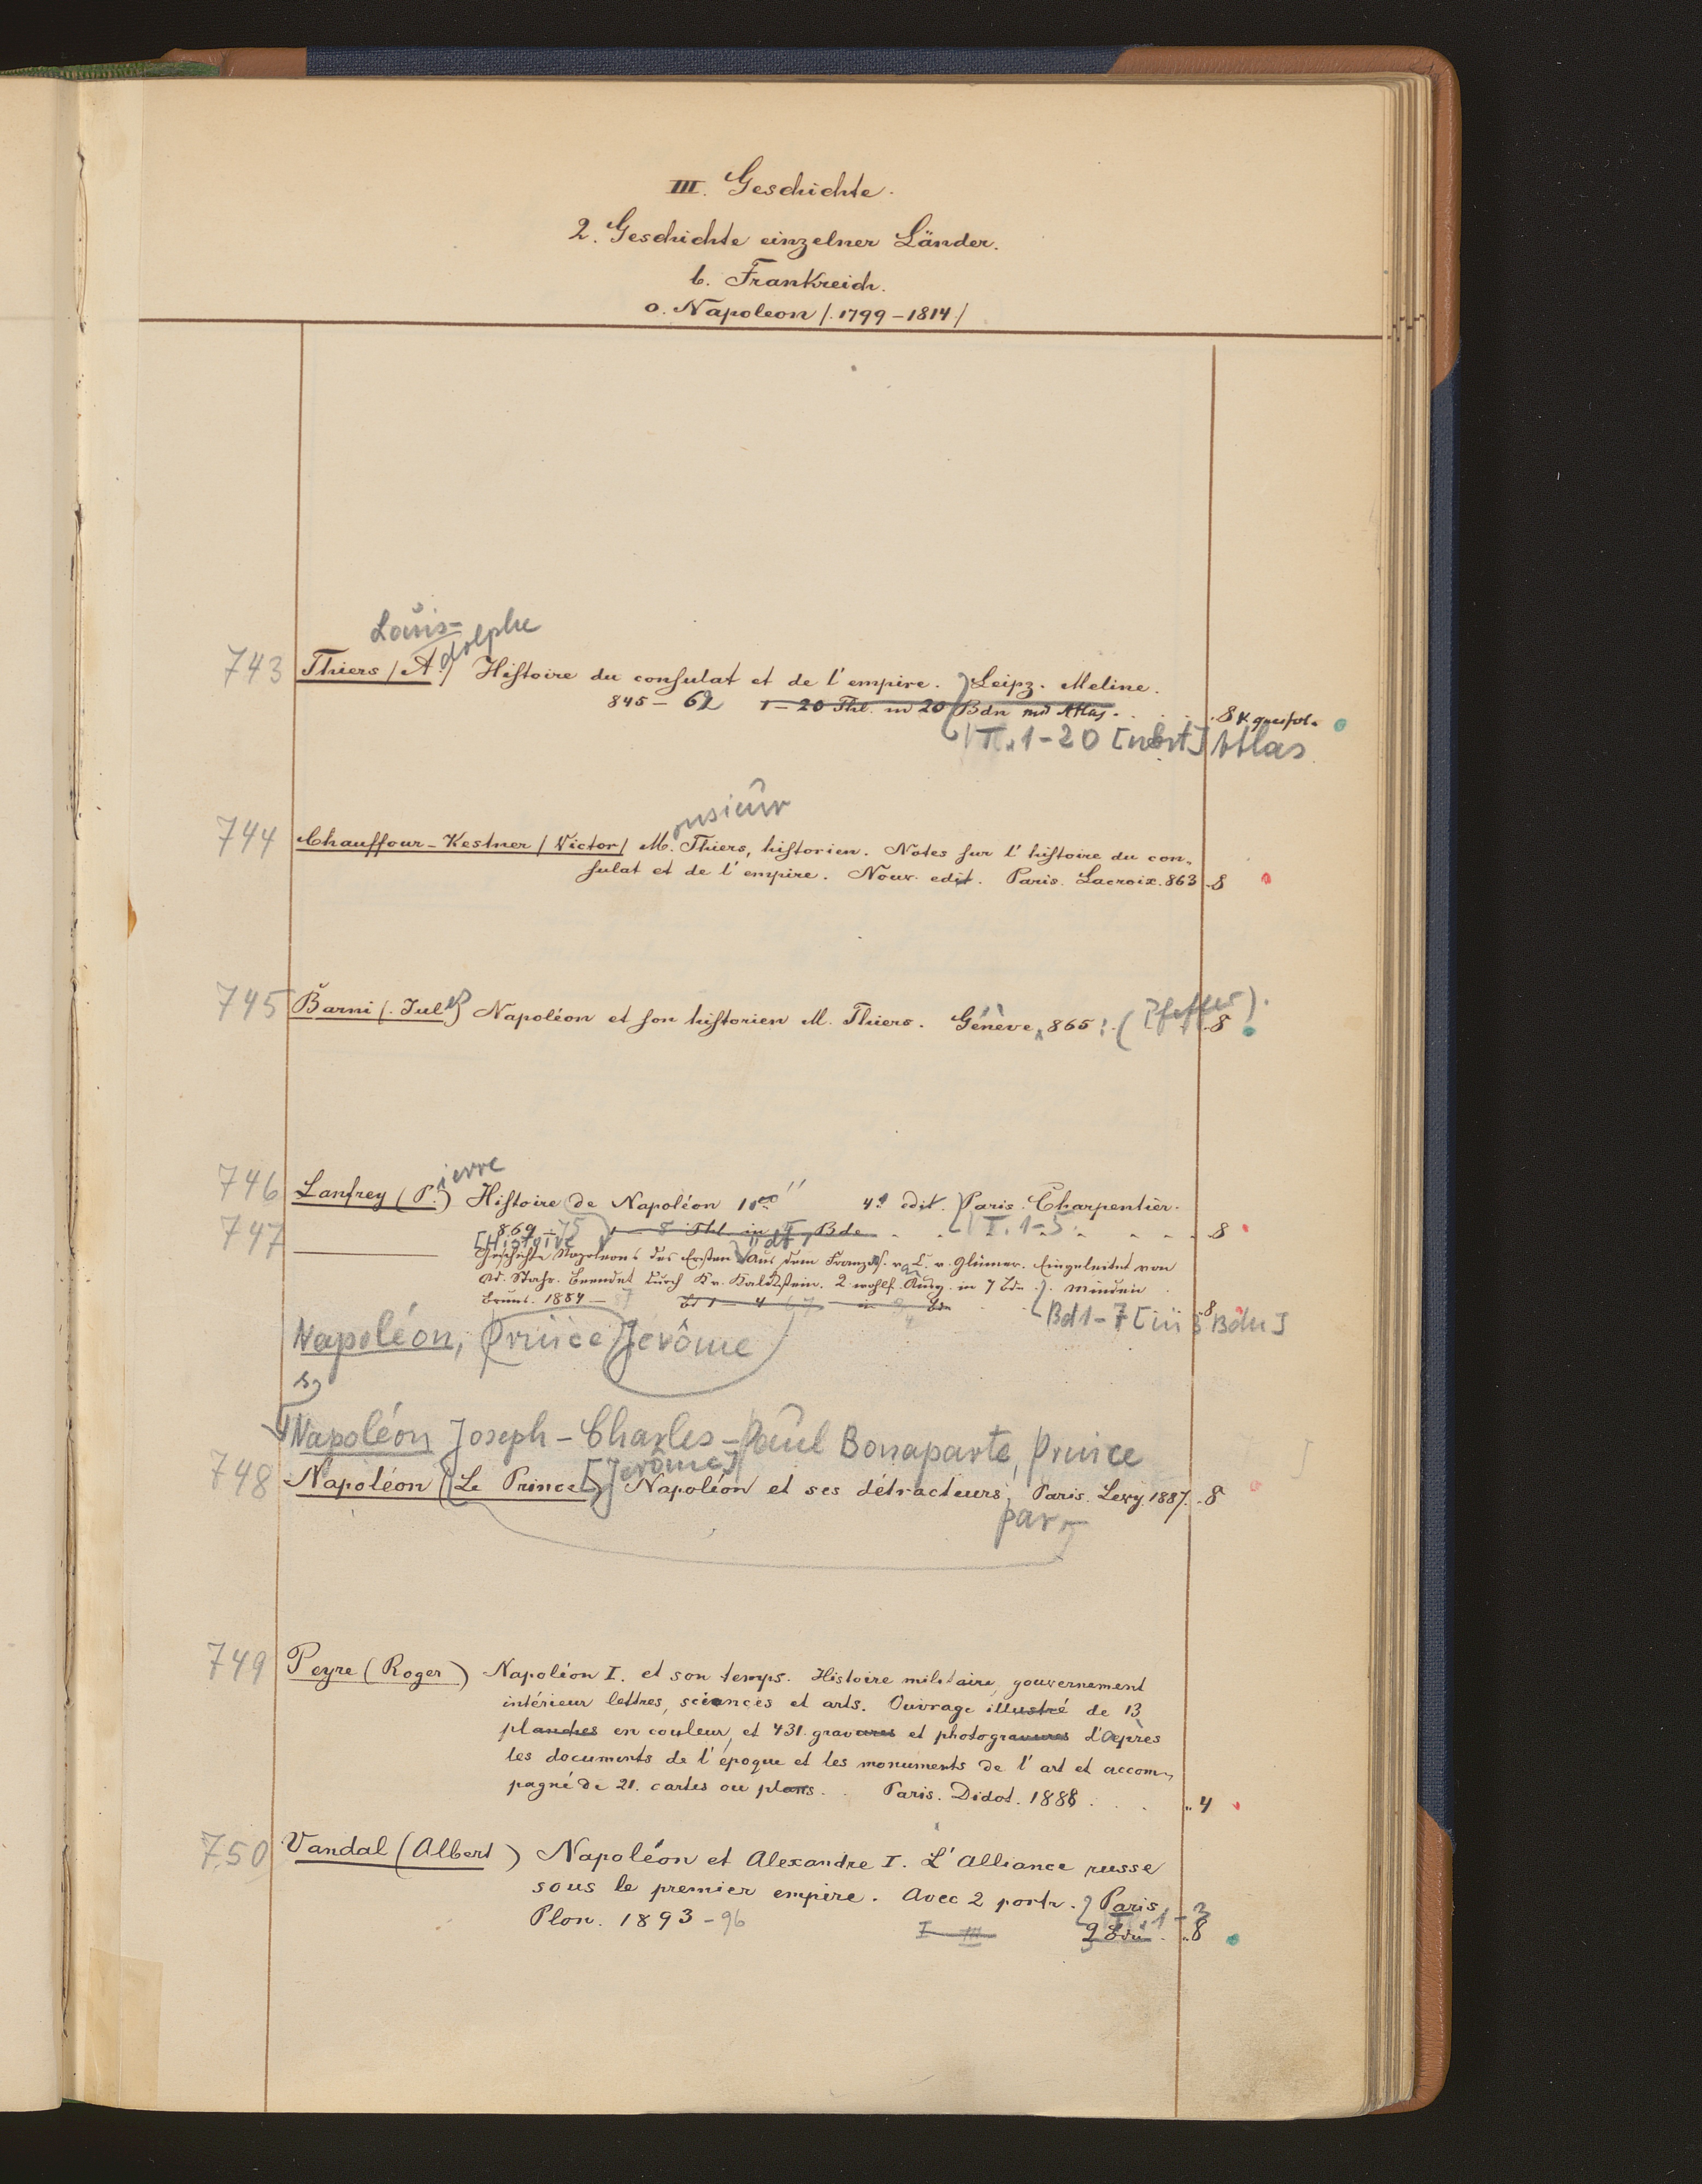 III. Geschichte.
2. Geschichte einzelner Länder.
b. Frankreich.
o. Napoleon /. 1799-1814./
Louis=
743 Thiers / A.dolphe / Histoire du consulat et de l'empire. } Leipz. Meline.
845-62 1-20 Thl. in 20 Bdn mit Atlas. . . . 8 K. querfol.
T. 1-20 [nebst] Atlas
onsieur
744 Chauffour-Kestner / Victor / M. Thiers, historien. Notes sur l'histoire du con-
sulat et de l'empire. Nouv. edit. Paris. Lacroix. 863 . 8
745 Barni (. Jules) Napoléon et son historien M. Thiers. Génève, 865. . 8
746 Lanfrey (P.ierre) Histoire de Napoléon 4e edit. } Paris. Charpentier.
869-75 1-5 Thl. in Bde . . T. 1-5. . . . 8
747 [Histoire
Geschichte Napoleons des Ersten. Aus dem Französ. v. C. v. Glümer. Eingeleitet von
Ad. Stahr. Beendet durch K v. Kalckstein. 2 wohlf. Ausg. in 7 Bdn. } Minden
Bruns. 1884-87 Bd 1-4 in Bdn . . 8
Bd 1-7 [in 3 Bdn]
Napoléon, Prince Jerôme
s.
Napoléon Joseph-Charles-Paul Bonaparte, Prince
[Jerôme]
748 Napoléon (Le Prince) Napoléon et ses détracteurs, Paris. Levy. 1887. . 8
par
749 Peyre (Roger) Napoléon I. et son temps. Histoire militaire, gouvernement
intérieur lettres, sciences et arts. Ouvrage illustré de 13
planches en couleur, et 431. gravures et photogravures d'après
les documents de l'époque et les monuments de l'art et accom-
pagné de 21. cartes ou plans. . Paris. Didot. 1888 . . . " 4
750 Vandal (Albert) Napoléon et Alexandre I. L'Alliance russe
sous le premier empire. Avec 2 portr. } Paris,
Plon. 1893-96 I-III T. 1-3
2 Bdn. . " 8